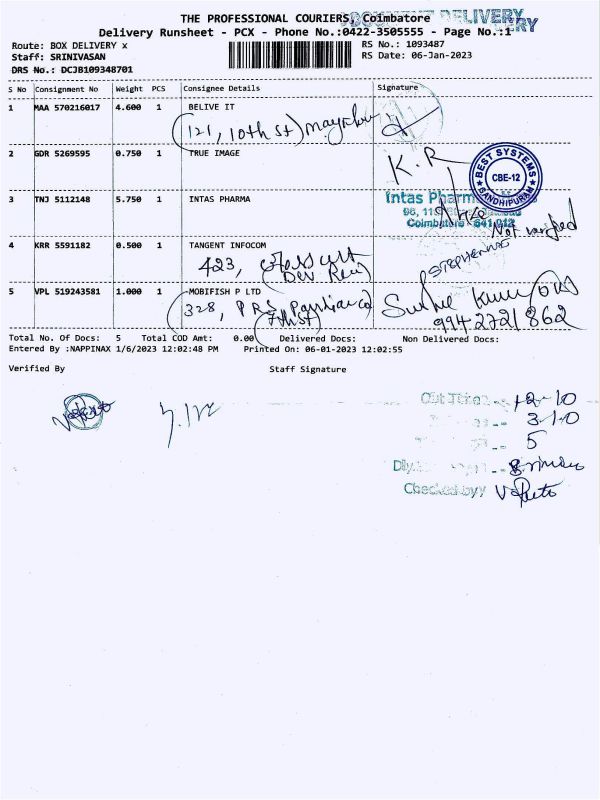 THE PROFESSIONAL COURIERS, Coimbatore
DELIVERY
Delivery Runsheet - PCX - Phone No.:0422-3505555 - Page No.:1
Route: BOX DELIVERY x
RS No.: 1093487
Staff: SRINIVASAN
RS Date: 06-Jan-2023
DRS No.: DCJB109348701
S No Consignment No Weight PCS Consignee Details Signature
1 MAA 570216017 4.600 1 BELIVE IT
(121, 10th St)
2 GDR 5269595 0.750 1 TRUE IMAGE
K.R
BEST SYSTEMS
CBE-12
GANDHIPURAM
3 TNJ 5112148 5.750 1 INTAS PHARMA
Intas Pharm
Coimbatore 641 012
Not verified
4 KRR 5591182 0.500 1 TANGENT INFOCOM
423,
5 VPL 519243581 1.000 1 MOBIFISH P LTD
328, PRS
(7th St)
9942721862
Total No. Of Docs: 5 Total COD Amt: 0.00 Delivered Docs: Non Delivered Docs:
Entered By :NAPPINAX 1/6/2023 12:02:48 PM Printed On: 06-01-2023 12:02:55
Verified By Staff Signature
3-10
5
Checked by